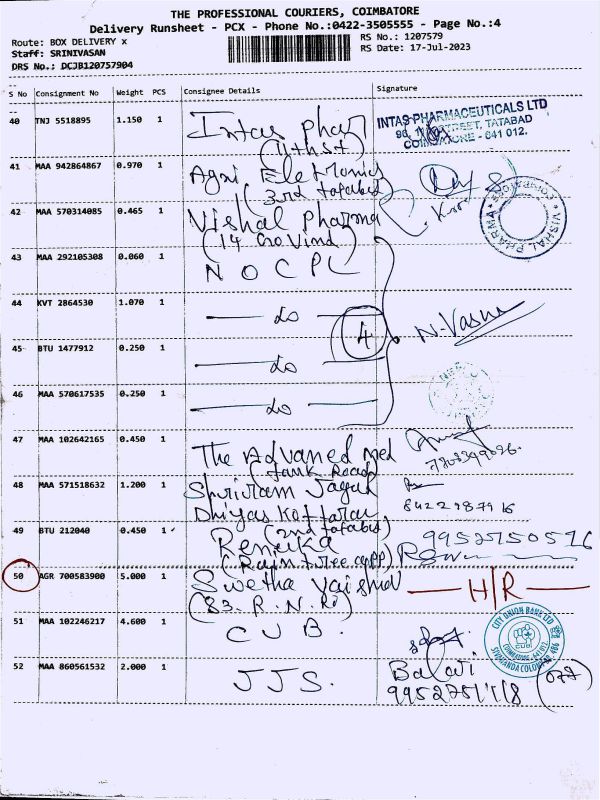 THE PROFESSIONAL COURIERS, COIMBATORE
Delivery Runsheet - PCX - Phone No.:0422-3505555 - Page No.:4
Route: BOX DELIVERY x
RS No.: 1207579
Staff: SRINIVASAN
RS Date: 17-Jul-2023
DRS No.: DCJB120757904
S No Consignment No Weight PCS Consignee Details Signature
40 TNJ 5518895 1.150 1 Intas phar
INTAS PHARMACEUTICALS LTD
TATABAD
COIMBATORE - 641 012.
41 MAA 942864867 0.970 1 Agni Eletronics
(3rd tatabad)
42 MAA 570314085 0.465 1 Vishal pharma
VISHAL PHARMA
COIMBATORE
43 MAA 292105308 0.060 1 NOCPL
44 KVT 2864530 1.070 1 — do —
4
N-Vasu
45 BTU 1477912 0.250 1 — do —
46 MAA 570617535 0.250 1 — do —
47 MAA 102642165 0.450 1 The Advaned med
(Tank Road)
48 MAA 571518632 1.200 1 Shriram Jagat
Dhiyas Kottaram
(2nd tatabad)
49 BTU 212040 0.450 1 Renuka
9952750516
50 AGR 700583900 5.000 1 Swetha Vaishnd
(83. R. N. R)
— H/R —
51 MAA 102246217 4.600 1 CUB.
CITY UNION BANK LTD
COIMBATORE-641 012
52 MAA 860561532 2.000 1 JJS.
Balaji
(077)